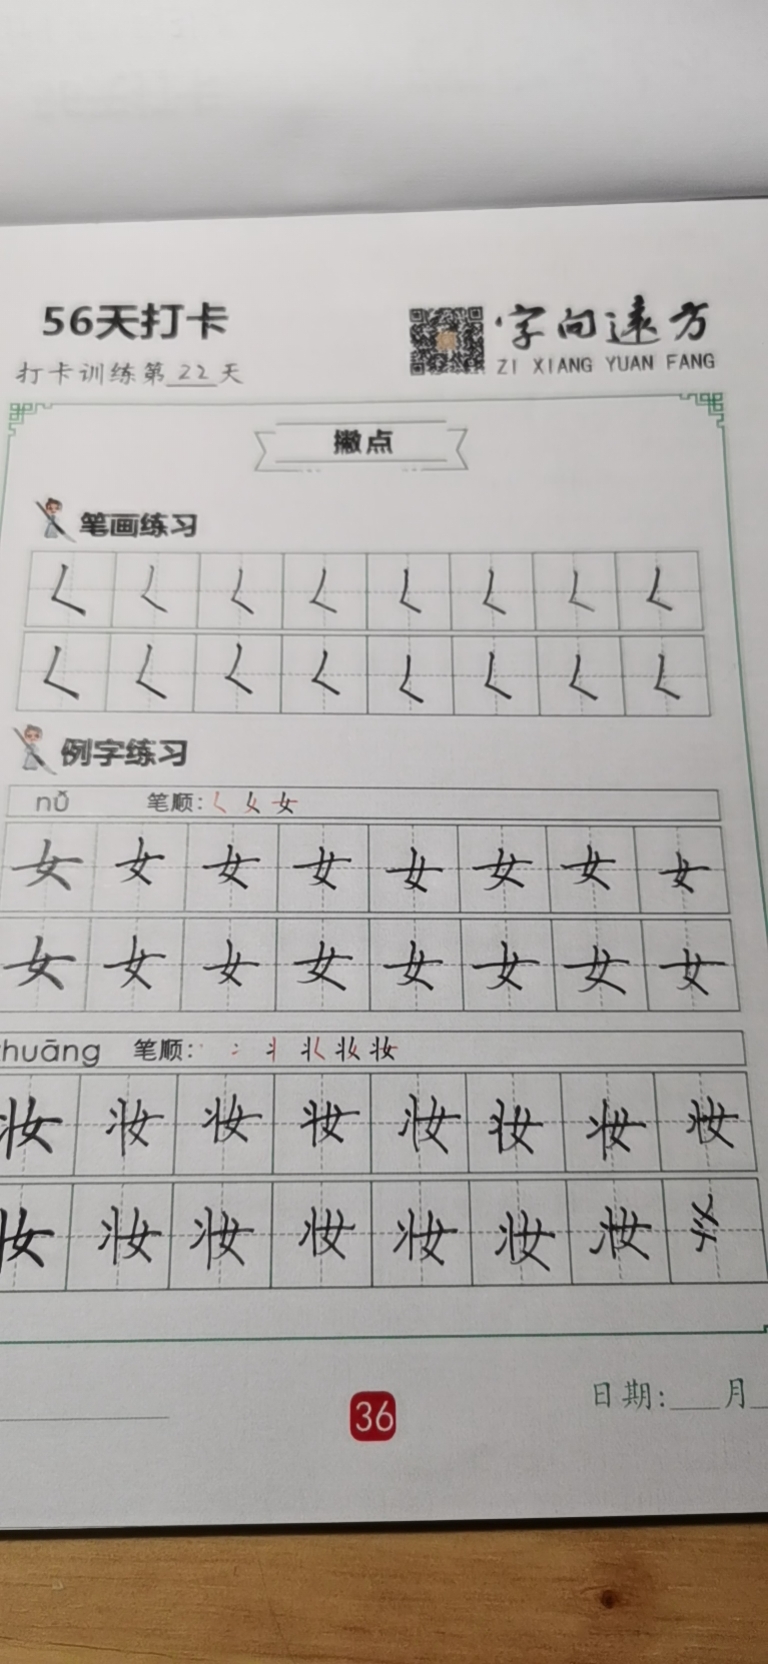 56天打卡
字向远方
ZI XIANG YUAN FANG
打卡训练第 22 天
撇点
笔画练习
𡿨 𡿨 𡿨 𡿨 𡿨 𡿨 𡿨 𡿨
𡿨 𡿨 𡿨 𡿨 𡿨 𡿨 𡿨 𡿨
例字练习
nǚ 笔顺: 𡿨 女 女
女 女 女 女 女 女 女 女
女 女 女 女 女 女 女 女
huāng 笔顺:
妆 妆 妆 妆 妆 妆 妆 妆
妆 妆 妆 妆 妆 妆 妆
日期:___月
36